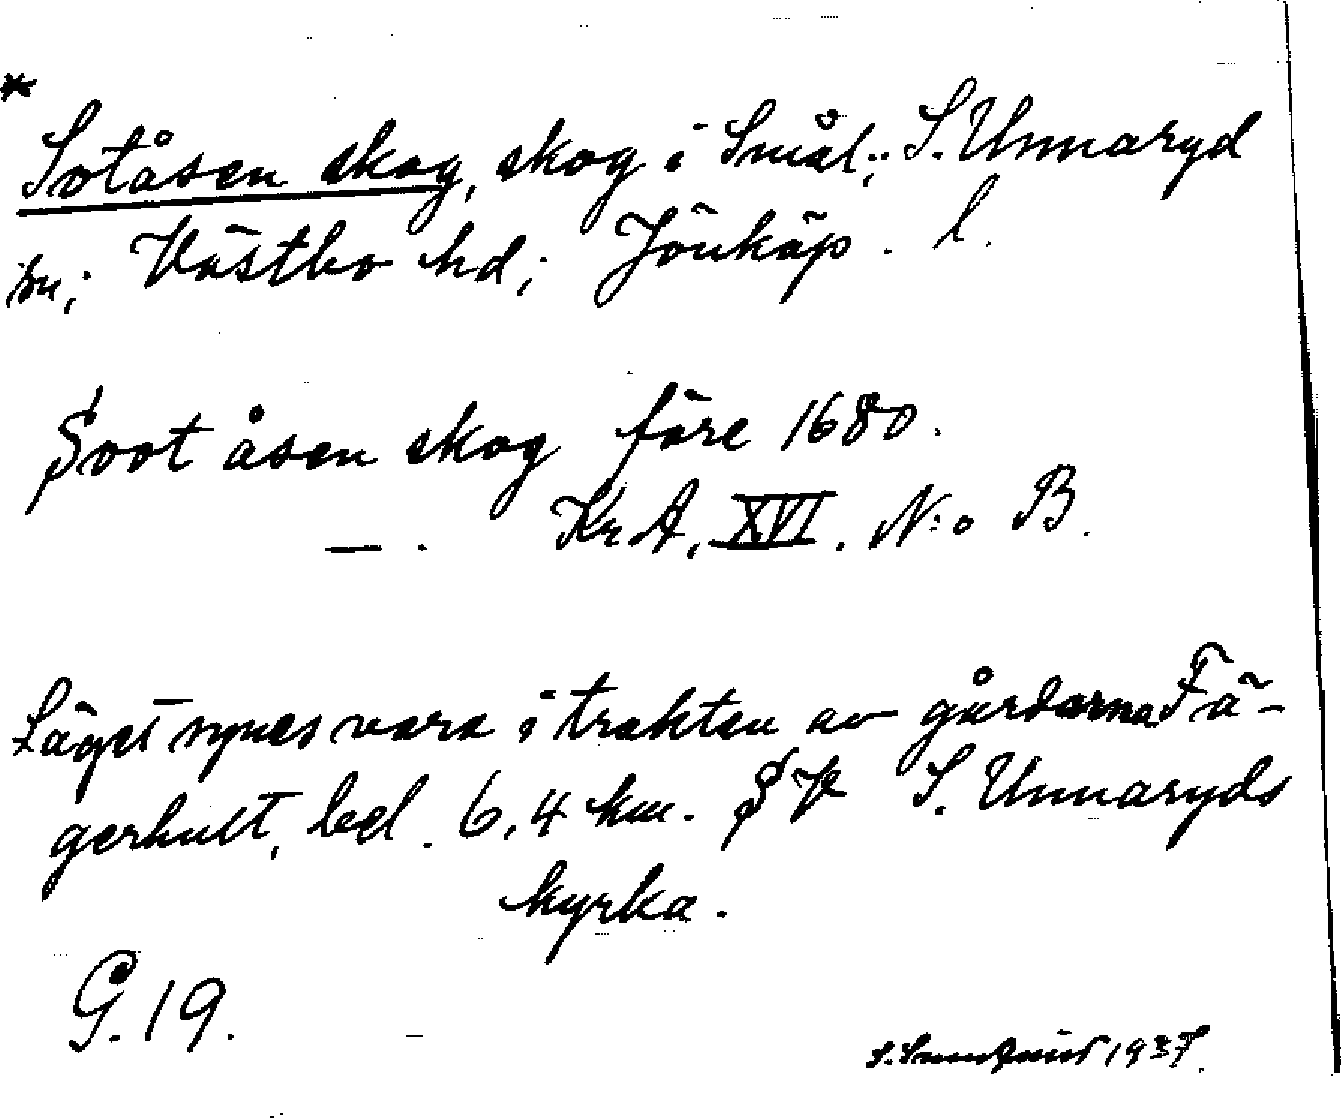 *
Sotåsen skog, skog i Smål.; S. Unnaryd
sn; Västbo hd; Jönköp. l.
Soot åsen skog före 1680.
— . KrA, XVI. N:o B.
Läget synes vara i trakten av gårdarna Fä-
gerhult, bel. 6,4 km. SV S. Unnaryds
kyrka.
G. 19.
1937.